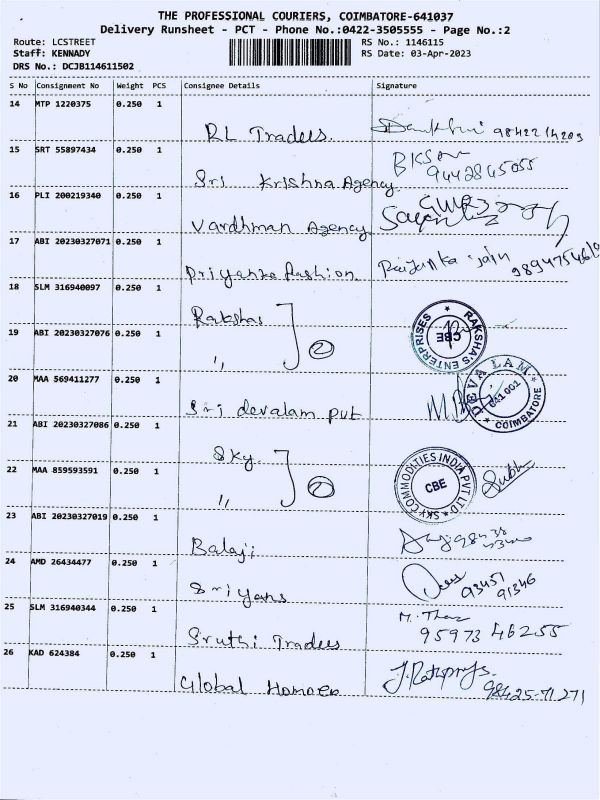 THE PROFESSIONAL COURIERS, COIMBATORE-641037
Delivery Runsheet - PCT - Phone No.:0422-3505555 - Page No.:2
Route: LCSTREET
Staff: KENNADY
DRS No.: DCJB114611502
RS No.: 1146115
RS Date: 03-Apr-2023
S No Consignment No Weight PCS Consignee Details Signature
14 MTP 1220375 0.250 1
RL Traders.
15 SRT 55897434 0.250 1
9442845055
Sri Krishna Agency
16 PLI 200219340 0.250 1
Vardhman Agency
17 ABI 20230327071 0.250 1
Priyanka Fashion Priyanka jain
18 SLM 316940097 0.250 1
Rakshas
RAKSHA'S ENTERPRISES
CBE
19 ABI 20230327076 0.250 1
,, 2
20 MAA 569411277 0.250 1
Sri devalam pvt
DEVALAM
641 001
COIMBATORE
21 ABI 20230327086 0.250 1
Sky
SKY COMMODITIES INDIA PVT LTD
CBE
22 MAA 859593591 0.250 1
,, 2
23 ABI 20230327019 0.250 1
Balaji
24 AMD 26434477 0.250 1
93451
91346
Sriyans
25 SLM 316940344 0.250 1
Sruthi Traders 95973 46255
26 KAD 624384 0.250 1
Global
98425-71271